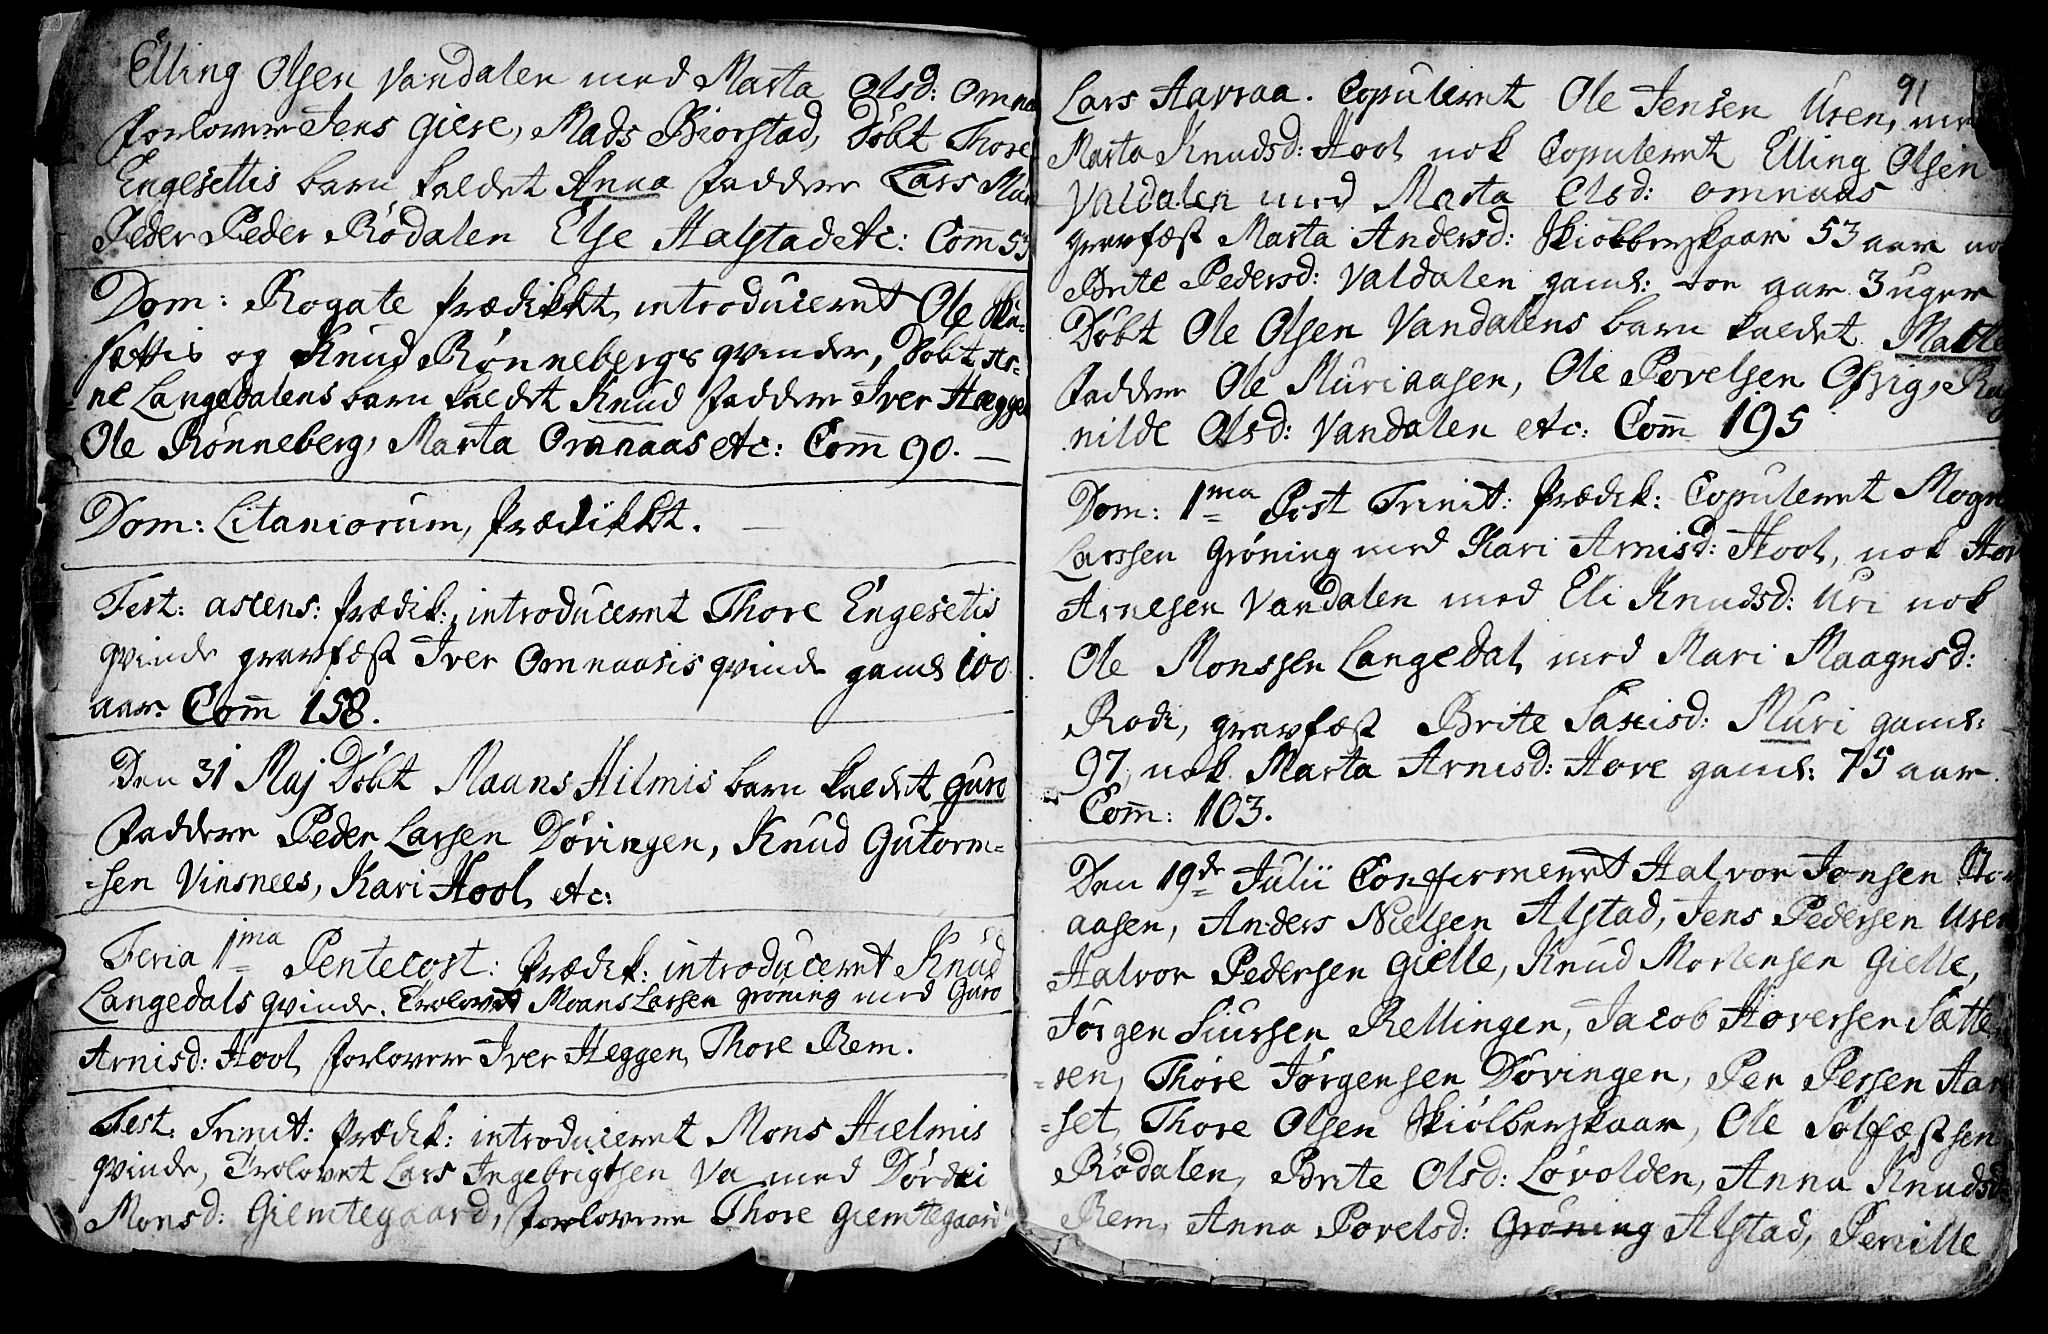 Elling Olsen Vandalen med Marta Olsd: Omnaa
Forlovere Jens Giere, Mads Biorstad, Døbt Thore
Engesettis barn kaldet Anna Faddere Lars Muri
Peder Peder Rødalen Else Halstad etc: Com̅ 53
Dom: Rogate Prædikkt, introduceret Ole
settis og Knud Rønnebergs qvinder, Døbt Ar-
ne Langedalens barn kaldet Knud Faddere Iver Hægge
Ole Rønneberg, Marta Omnaas etc: Com̅ 90. —
Dom: Litaniorum, Prædikkt. —
Fest: ascens: Prædik: introduceret Thore Engesetis
qvinde gravfæst Iver Omnaasis qvinde gaml 100
aar. Com̅ 158.
Den 31 Maj Døbt Maans Hilmis barn kaldet Guro
Faddere Peder Larsen Døvingen, Knud Gutorm=
=sen Vinsnees, Kari Hool, etc:
Feria 1ma Pentecost: Prædik: introduceret Knud
Langedals qvinde. Trolovet Moans Larsen Grøning med Guro
Arnisd: Hool, forlovere Iver Heggen, Thore Rem.
Fest: Trinit: Prædik: introduceret Mons Hielmis
qvinde, Trolovet Lars Ingebrigtsen Va med Dørdei
Monsd: Giemtegaard, Forlovere Thore Giemtegaard
91
Lars Aavraa. Copuleret Ole Jensen Uren, med
Marta Knudsd: Hool nok Copuleret Elling Olsen
Valdalen med Marta Olsd: Omnaas
gravfæst Marta Andersd: Skiølberskaar 53 aar nok
Brite Pedersd: Valdalen gaml: toe aar 3 uger
Døbt Ole Olsen Vandalens barn kaldet
Faddere Ole Muriaasen, Ole Povelsen Ofsvig, Rag
nilde Olsd: Vandalen etc: Com̅ 195
Dom: 1ma Post Trinit: Prædik: Copuleret Mogn
Larssen Grøning med Kari Arnisd: Hool, nok
Arnesen Vandalen med Eli Knudsd: Uri nok
Ole Monssen Langedal, med Mari Maagnsd:
Rodi, gravfæst Brite Saxisd: Muri gaml:
97, nok Marta Arnisd: Hove gaml: 75 aar.
Com̅: 103.
Den 19de Julii Confirmeret Halvor Jonsen
aasen, Anders Nielsen Alstad, Jens Pedersen Uren
Halvor Pedersen Gielle, Knud Mortensen Gielle,
Jørgen Siursen Rellingen, Jacob Hoversen Satte
=ren, Thore Jørgensen Døvingen, Per Persen Aar
=set, Thore Olsen Skiølberskaar, Ole Solfæstsen
Rødalen, Brite Olsd: Løvolden, Anna Knudsd:
Rem, Anna Povelsd: Grøning Alstad, Pernille